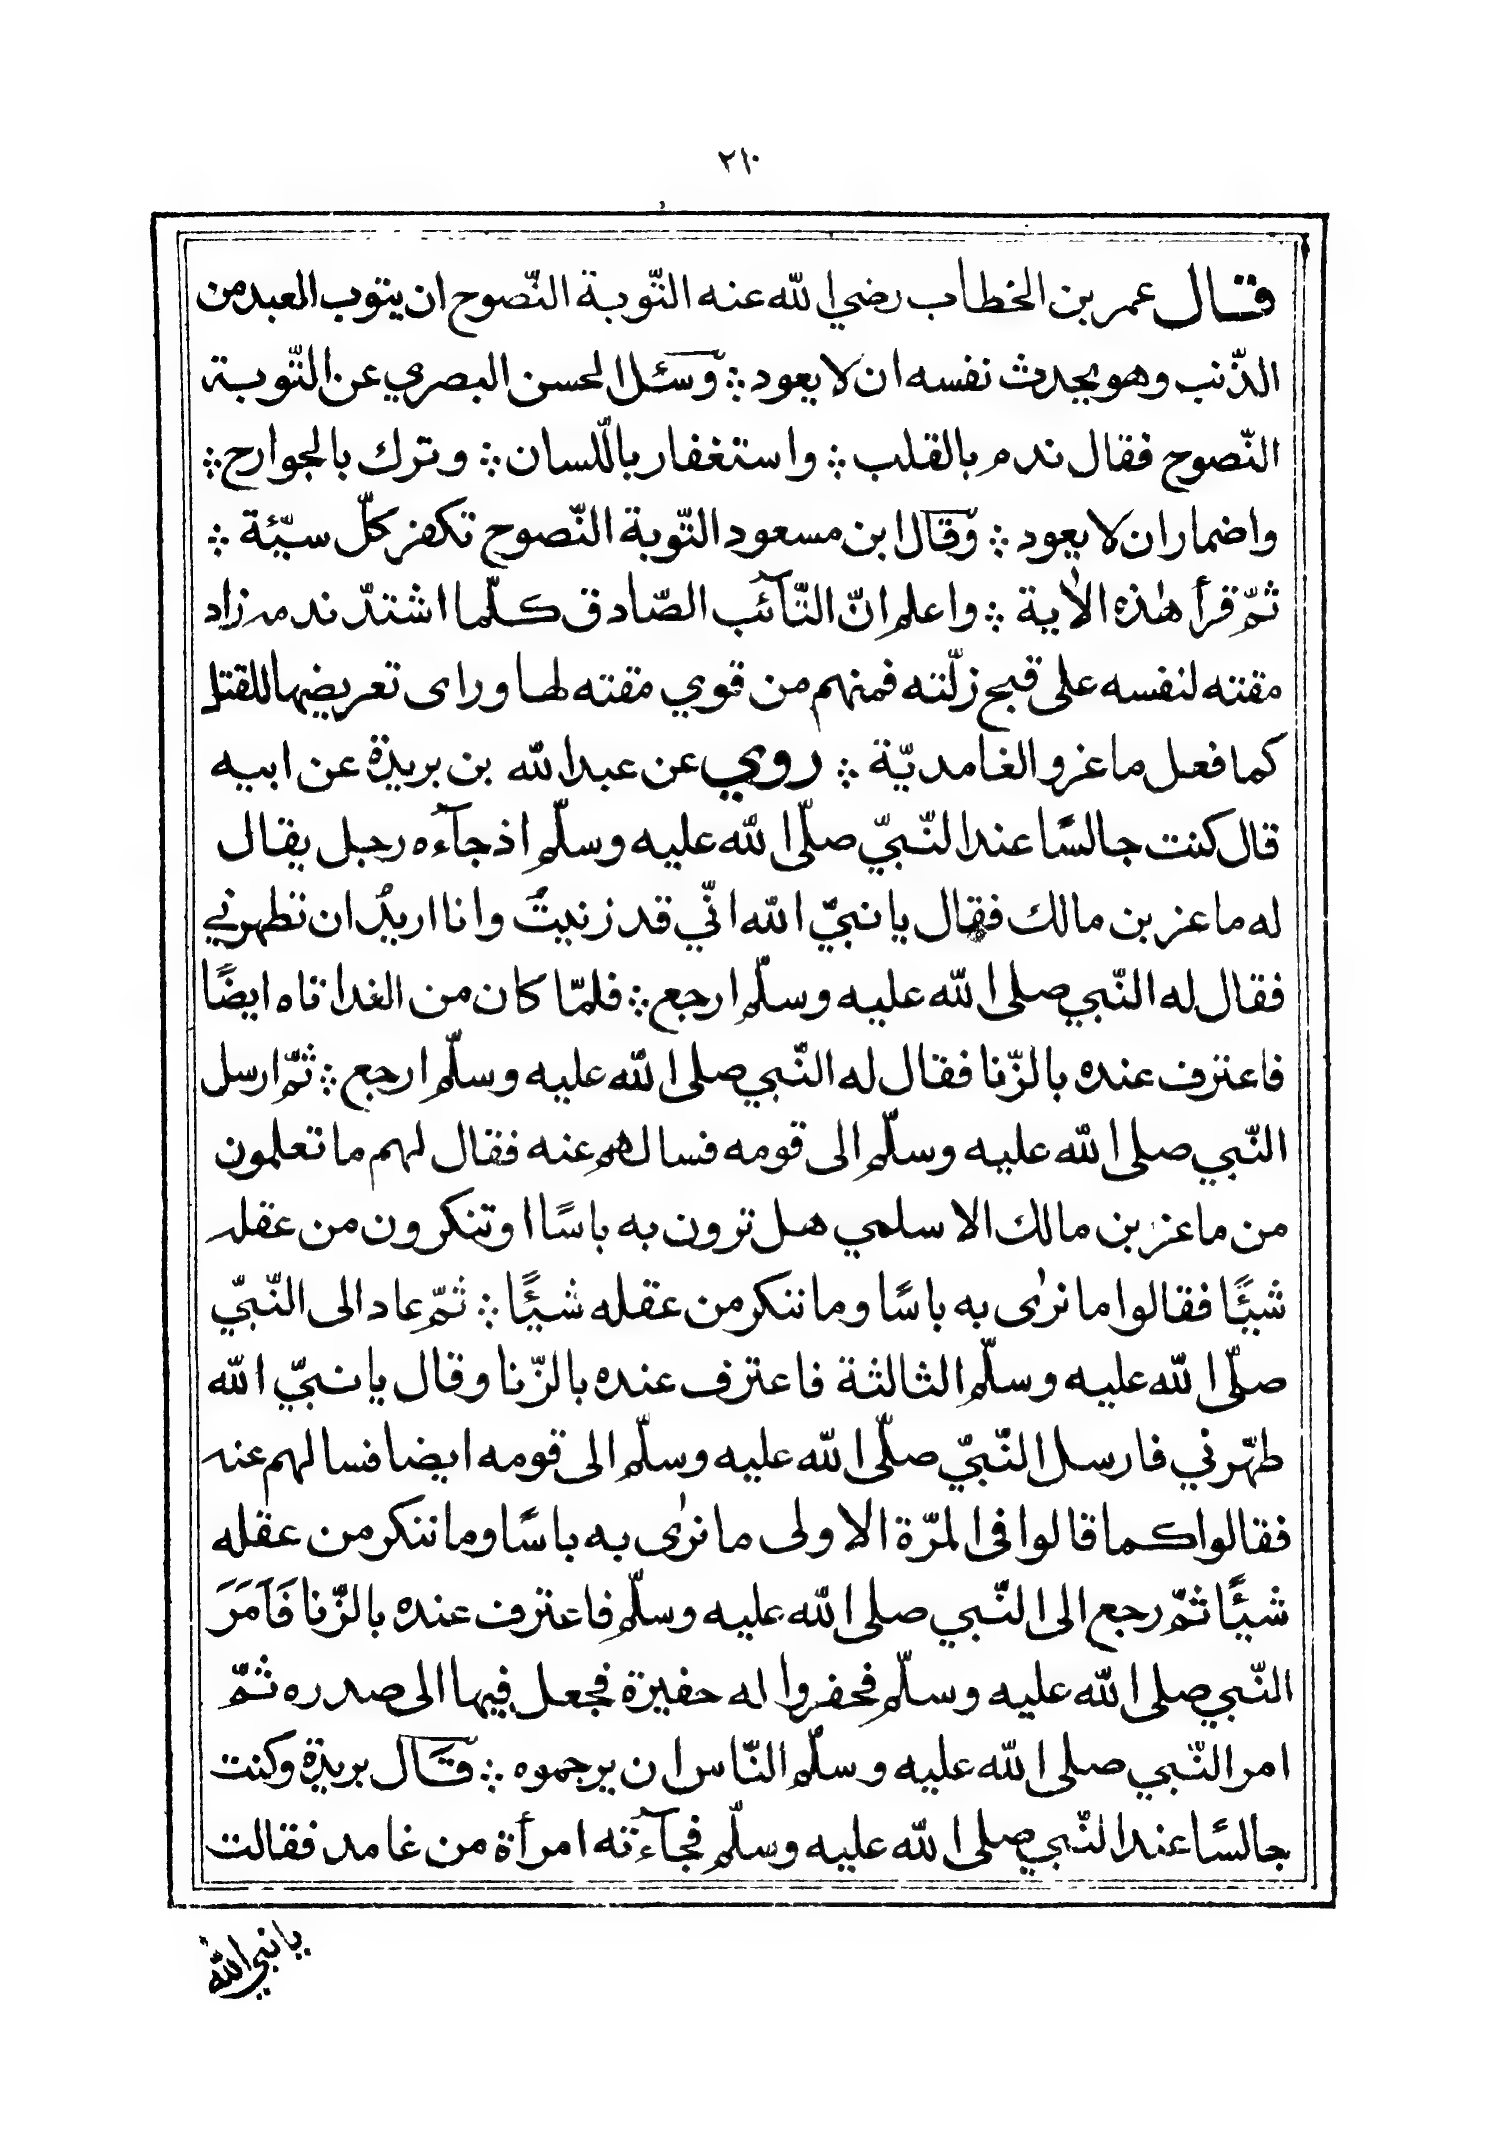 ٢١٠
قال عمر بن الخطاب رضي الله عنه التّوبة النّصوح ان يتوب العبد من
الذّنب وهو يحدث نفسه ان لا يعود ؞ وسئل الحسن البصري عن التّوبة
النّصوح فقال ندم بالقلب ؞ واستغفار باللّسان ؞ وترك بالجوارح ؞
واضمار ان لا يعود ؞ وقال ابن مسعود التّوبة النّصوح تكفر كلّ سيّئة ؞
ثمّ قرأ هٰذه الاٰية ؞ واعلم انّ التّآئب الصّادق كلّما اشتدّ ندمه زاد
مقته لنفسه على قبح زلّته فمنهم من قوي مقته لها وراى تعريضها للقتل
كما فعل ماعز والغامديّة ؞ روي عن عبد الله بن بريدة عن ابيه
قال كنت جالسًا عند النّبيّ صلّى الله عليه وسلّم اذ جآءه رجل يقال
له ماعز بن مالك فقال يا نبيّ الله انّي قد زنيتُ وانا اريدُ ان تطهرني
فقال له النّبي صلى الله عليه وسلّم ارجع ؞ فلمّا كان من الغد اتاه ايضًا
فاعترف عنده بالزّنا فقال له النّبي صلى الله عليه وسلّم ارجع ؞ ثمّ ارسل
النّبي صلى الله عليه وسلّم الى قومه فسالهم عنه فقال لهم ما تعلمون
من ماعز بن مالك الاسلمي هل ترون به باسًا او تنكرون من عقله
شيئًا فقالوا ما نرٰى به باسًا وما ننكر من عقله شيئًا ؞ ثمّ عاد الى النّبيّ
صلّى الله عليه وسلّم الثالثة فاعترف عنده بالزّنا وقال يا نبيّ الله
طهّرني فارسل النّبيّ صلّى الله عليه وسلّم الى قومه ايضا فسالهم عنه
فقالوا كما قالوا في المرّة الاولى ما نرٰى به باسًا وما ننكر من عقله
شيئًا ثمّ رجع الى النّبي صلى الله عليه وسلّم فاعترف عنده بالزّنا فَاَمَرَ
النّبي صلى الله عليه وسلّم فحفروا له حفيرة فجعل فيها الى صدره ثمّ
امر النّبي صلى الله عليه وسلّم النّاس ان يرجموه ؞ قال بريدة وكنت
جالسًا عند النّبي صلى الله عليه وسلّم فجآءته امرأة من غامد فقالت
يا نبي الله